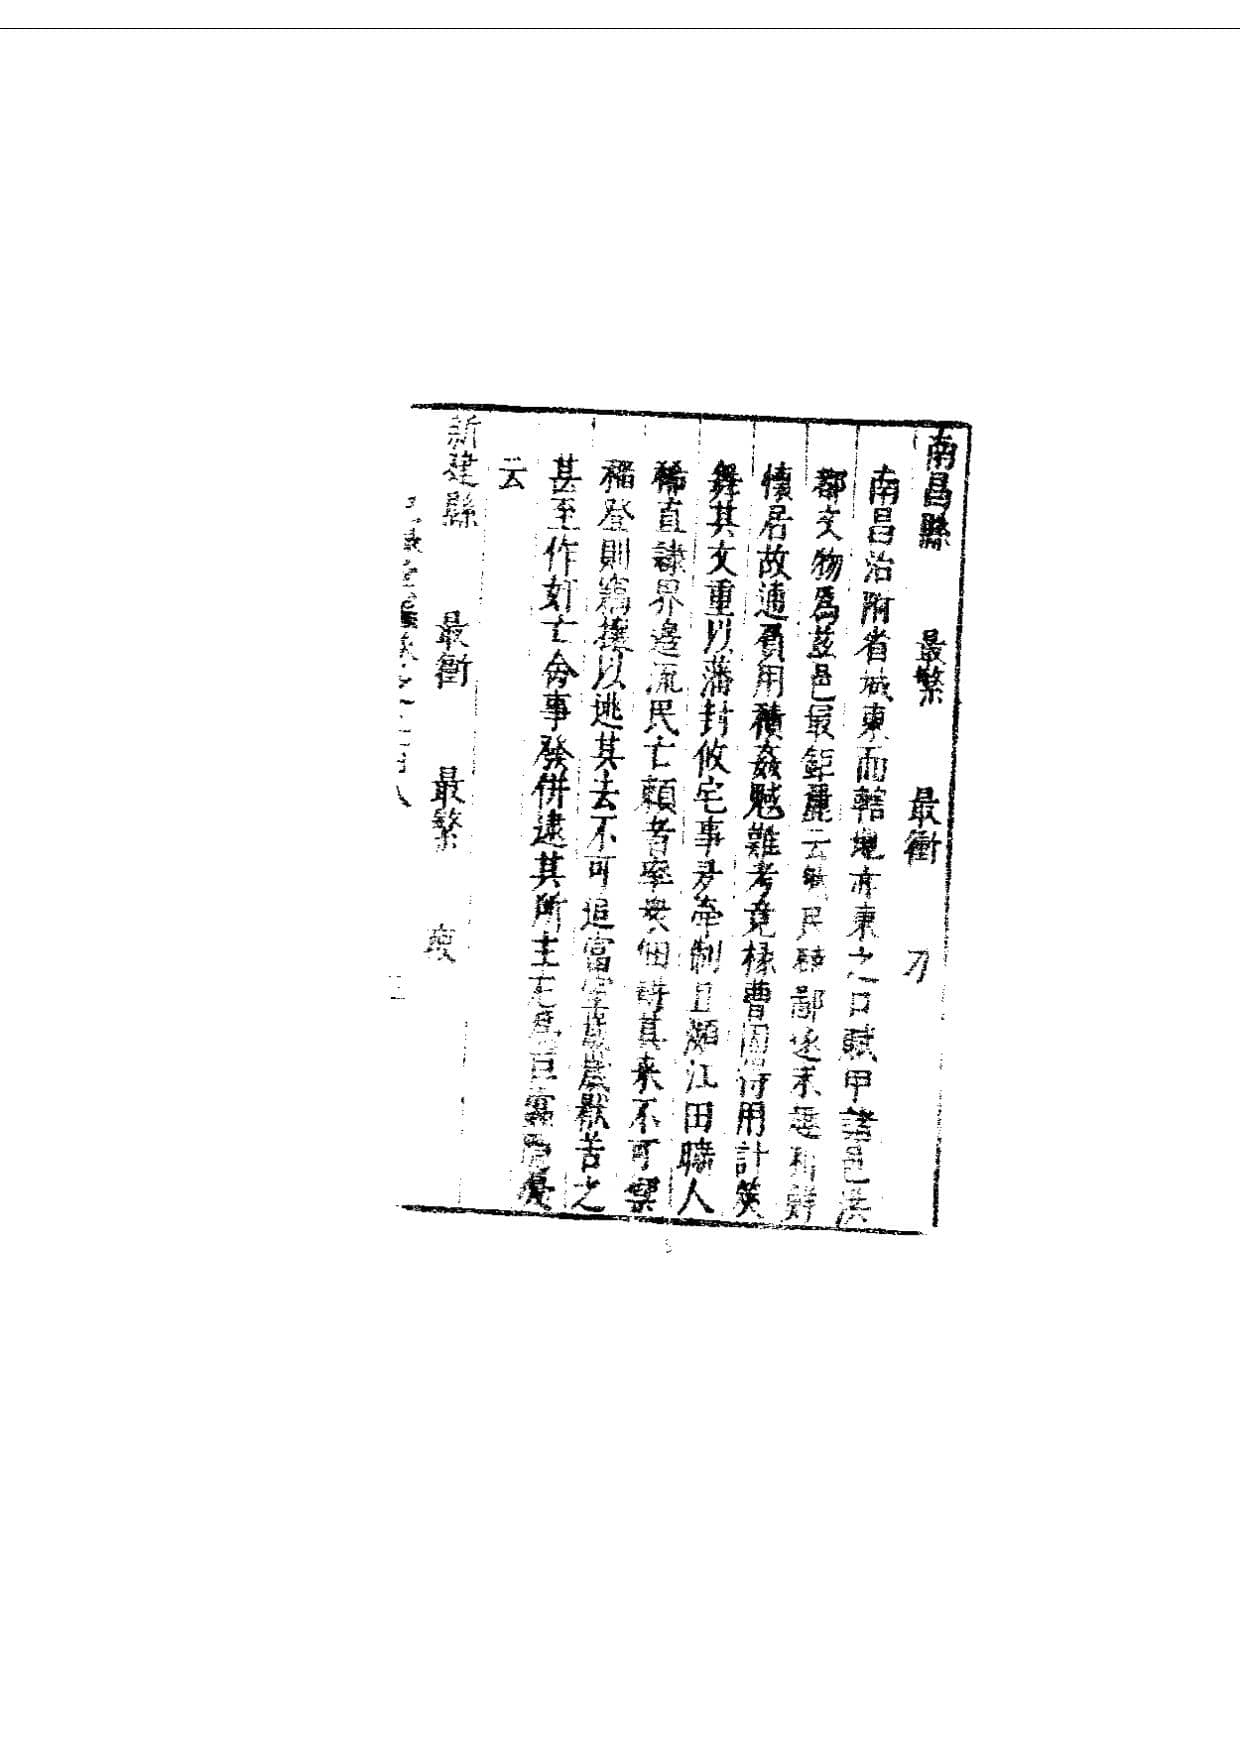 南昌縣　最繁　最衝　刁
南昌治附省城東而轄地亦東之口賦甲諸邑洪
都文物爲茲邑最鉅麗云民鄙逐末
懷居故逋賦用積姦慝難考竟椽曹因得用計筴
舞其文重以藩封攸宅事多牽制且瀕江田疇人
稀直隷界邊流民亡賴者率安佃時其來不可禦
稻登則竊攘以逃其去不可追富室歲歲厭苦之
甚至作奸亡命事發併逮其所主
云
新建縣　最衝　最繁　疲